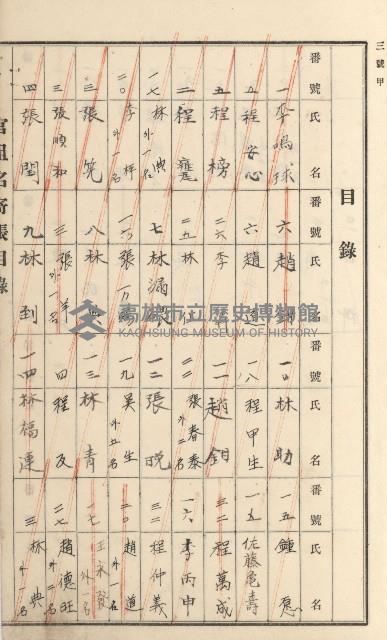 三號甲
目錄
番號 氏名
一 李鳴球
五 程安心
五 程榜
二 程蹇
一七 林典 外一名
二〇 李梓 外一名
三 張筦
三 張順和
四 張閏
番號 氏名
六 趙
六 趙
二六 李
二五 林
七 林漏
一六 張万
八 林
三 張羊 外一名
九 林到
番號 氏名
一〇 林助
一八 程甲生
一一 趙鈅
二 張春泰 外二名
一二 張晚
一九 吳生 外五名
一三 林青
四 程及
一四 林福連
番號 氏名
一五 鍾愿
一五 佐藤亀壽
三二 程萬成
一六 李丙申
三二 程仲義
二〇 趙道 外一名
一七 王永發 外名
二七 趙德旺 外二名
三 林典 外一名
官租名寄帳目錄
高雄市立歷史博物館
KAOHSIUNG MUSEUM OF HISTORY